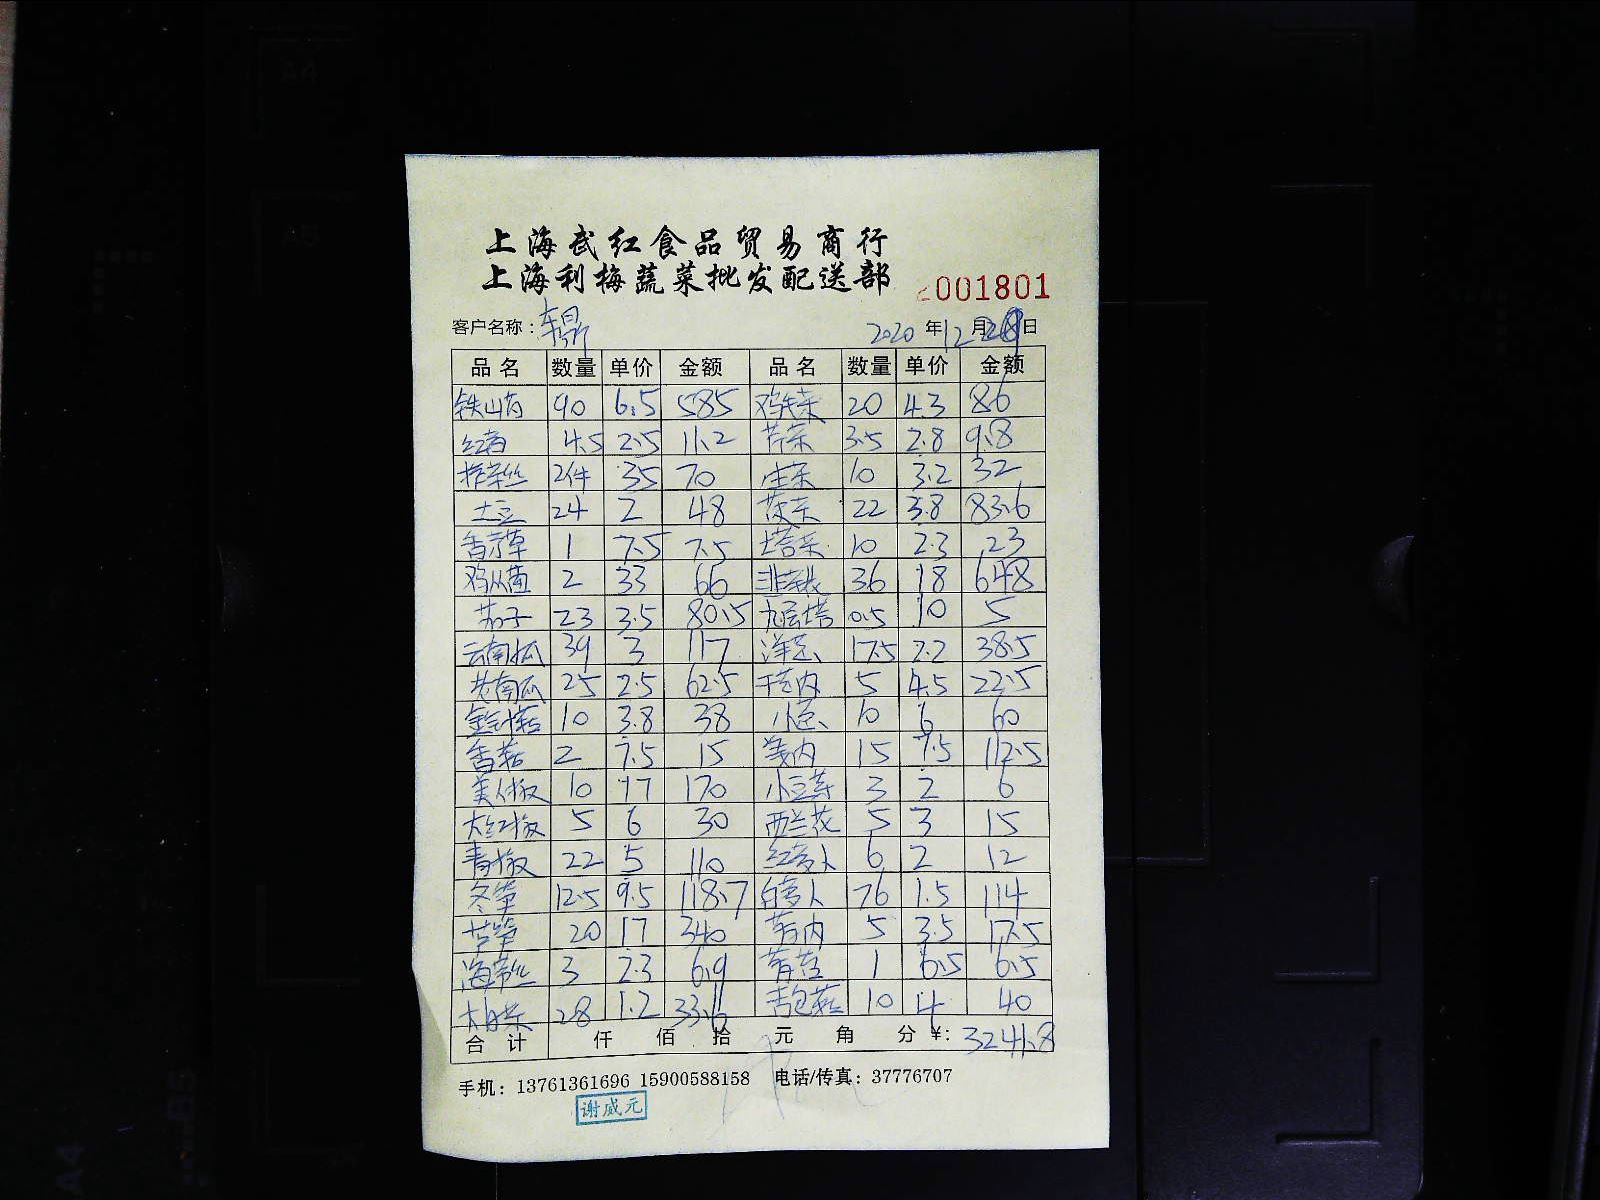 上海武红食品贸易商行
上海利梅蔬菜批发配送部
2001801
客户名称: 2020 年 12 月 28 日
品名 数量 单价 金额 品名 数量 单价 金额
铁山药 90 6.5 585 鸡毛菜 20 4.3 86
红薯 4.5 2.5 11.2 芹菜 3.5 2.8 9.8
榨菜丝 2件 35 70 生菜 10 3.2 32
土豆 24 2 48 菠菜 22 3.8 83.6
香茅草 1 7.5 7.5 塔菜 10 2.3 23
鸡从菌 2 33 66 韭菜 36 18 648
茄子 23 3.5 80.5 九层塔 0.5 10 5
云南瓜 39 3 117 洋葱 17.5 2.2 38.5
黄南瓜 25 2.5 62.5 干葱肉 5 4.5 22.5
金针菇 10 3.8 38 小葱 10 6 60
香菇 2 7.5 15 姜肉 15 7.5 112.5
美人椒 10 17 170 小豆芽 3 2 6
大红椒 5 6 30 西兰花 5 3 15
青椒 22 5 110 红萝卜 6 2 12
冬笋 12.5 9.5 118.7 白萝卜 76 1.5 114
芦笋 20 17 340 肉 5 3.5 17.5
海带丝 3 2.3 6.9 1 6.5 6.5
大白菜 28 1.2 33.6 杏包菇 10 4 40
合计 仟 佰 拾 元 角 分 ¥: 3241.8
手机: 13761361696 15900588158 电话/传真: 37776707
谢威元